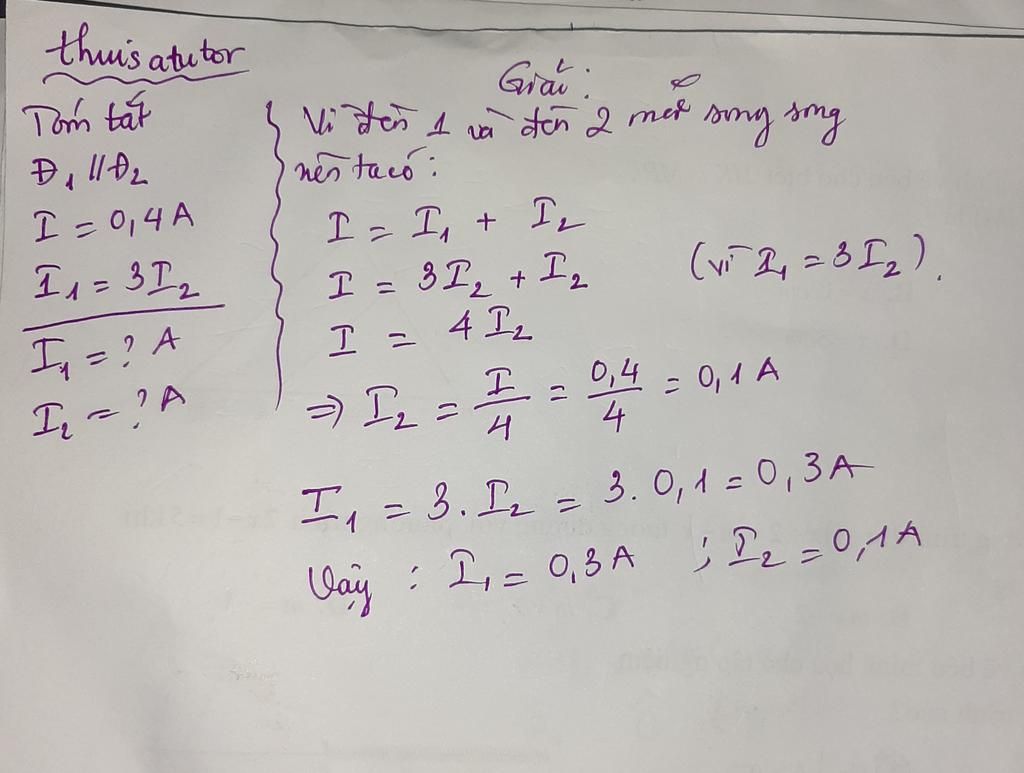 thuisatutor
Tóm tắt
Đ₁ // Đ₂
I = 0,4A
I₁ = 3I₂
I₁ = ? A
I₂ = ? A
Giải:
Vì đèn 1 và đèn 2 mắc song song
nên ta có:
I = I₁ + I₂
I = 3I₂ + I₂ (vì I₁ = 3I₂).
I = 4I₂
⇒ I₂ = I/4 = 0,4/4 = 0,1A
I₁ = 3. I₂ = 3. 0,1 = 0,3A
Vậy : I₁ = 0,3A ; I₂ = 0,1A